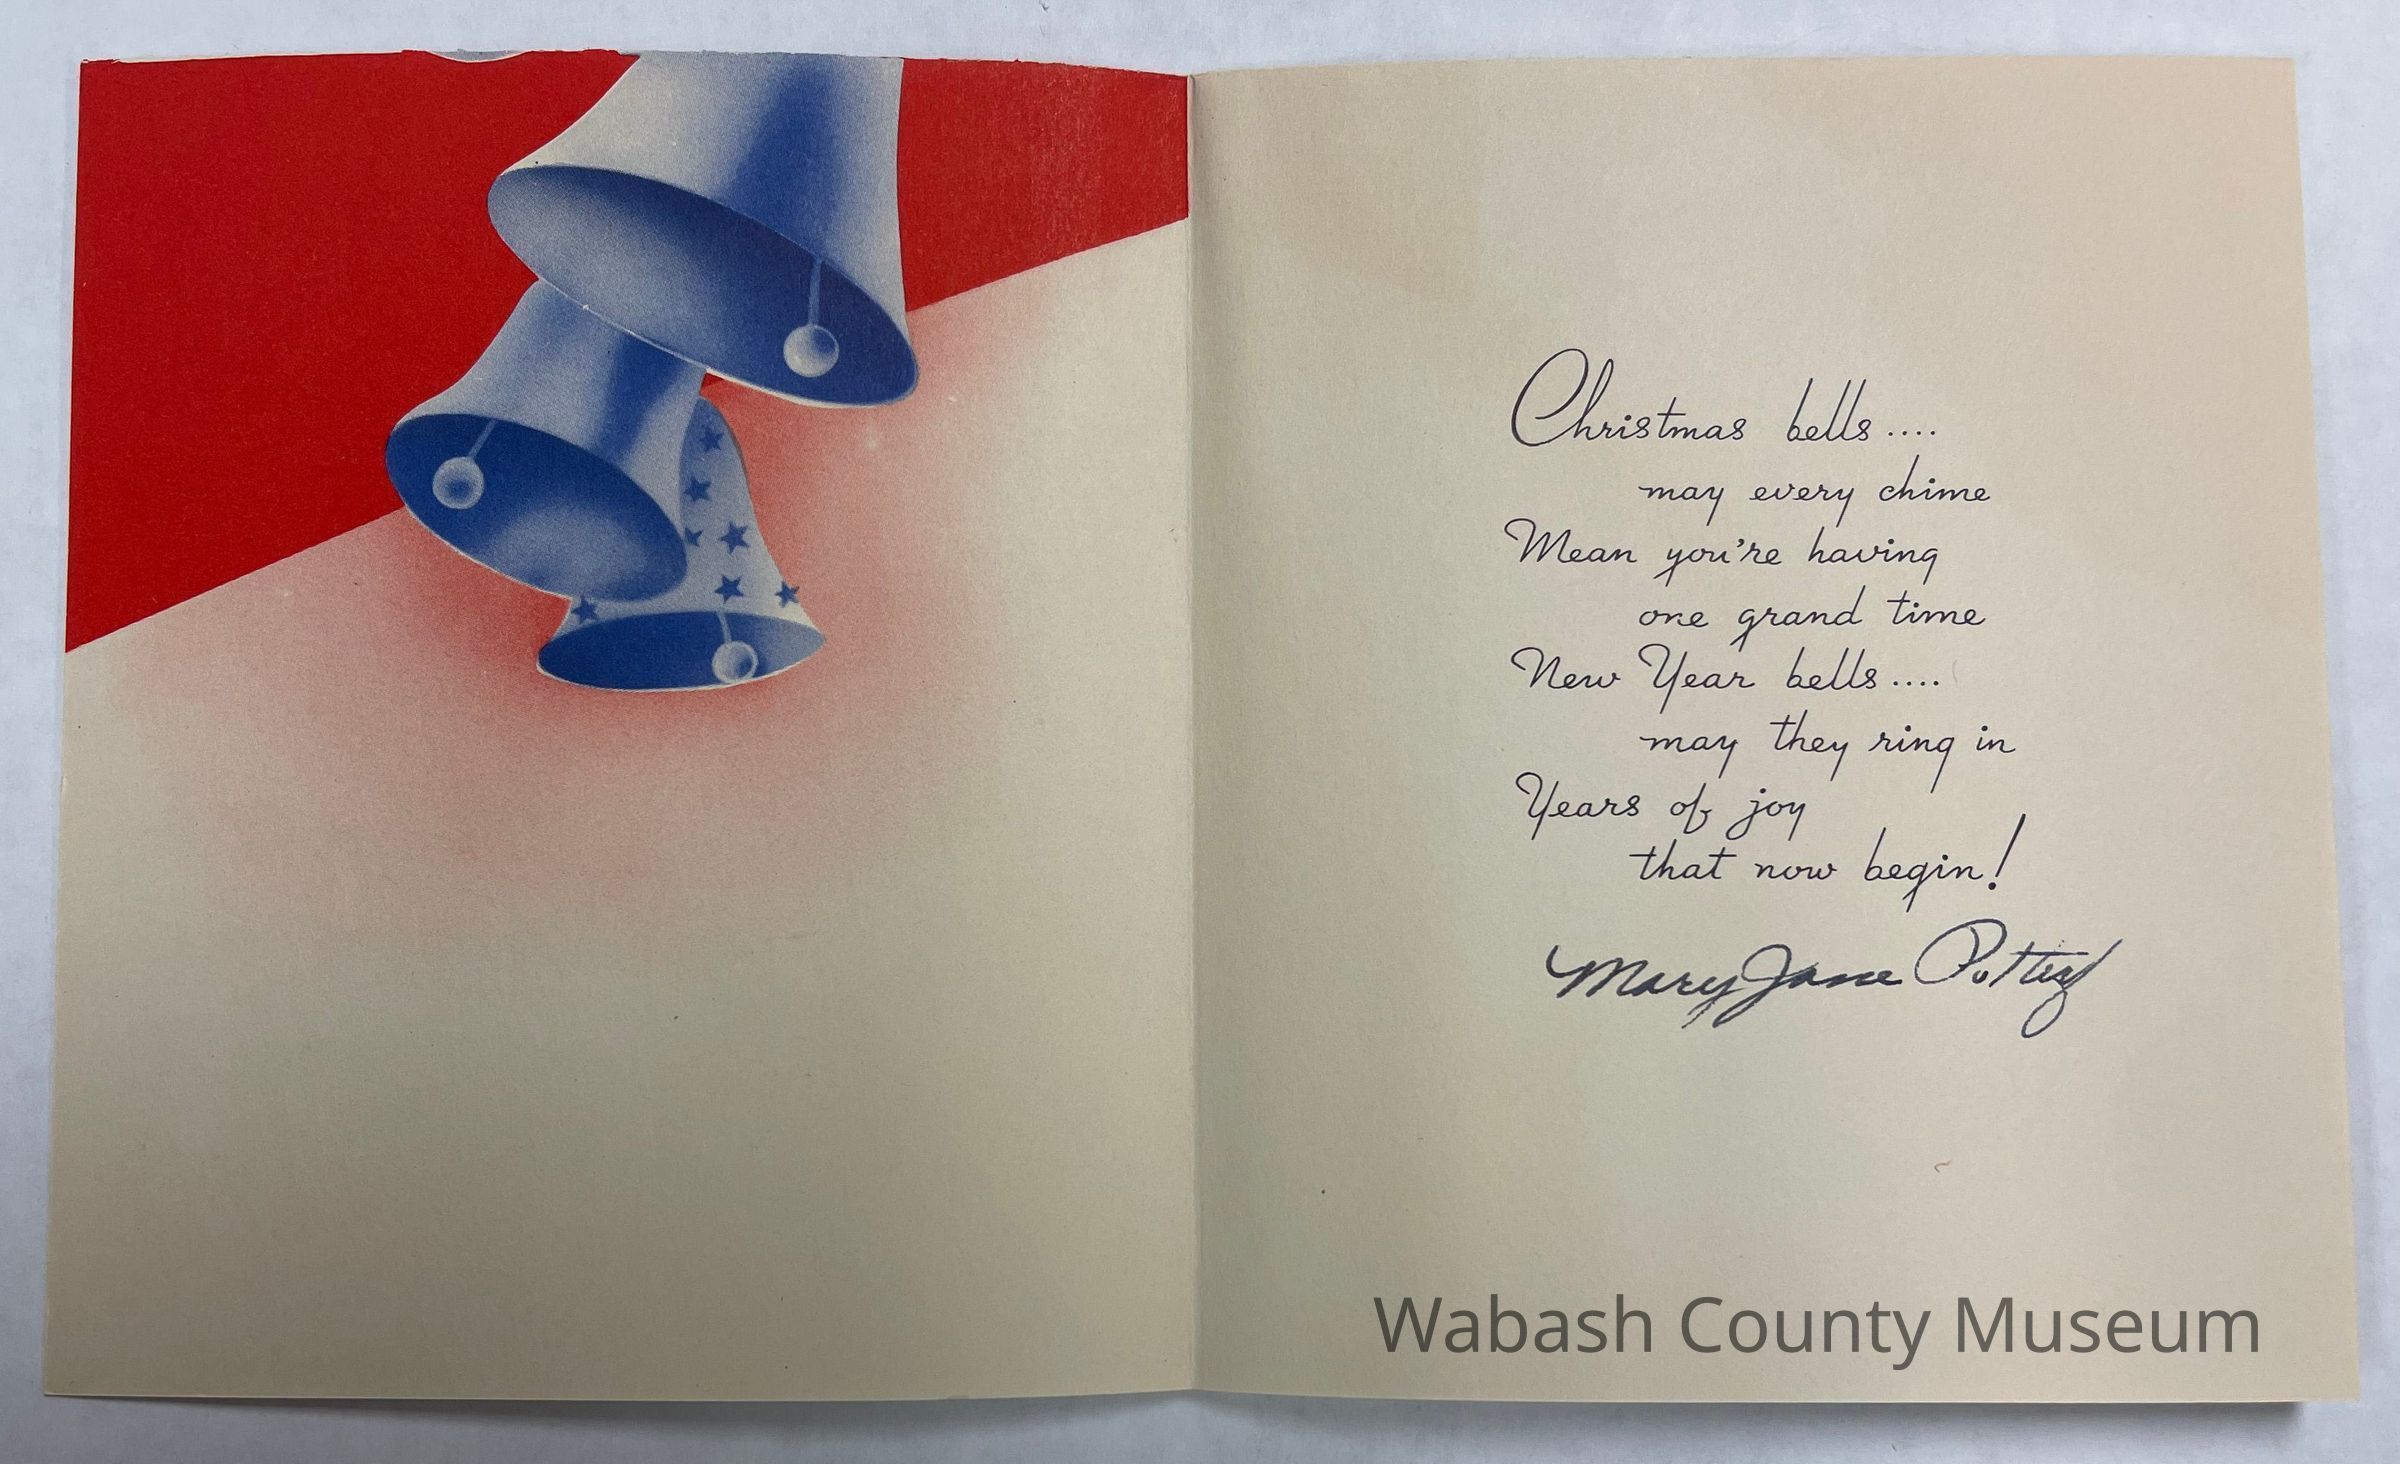 Christmas bells....
may every chime
Mean you're having
one grand time
New Year bells....
may they ring in
Years of joy
that now begin!
Mary Jane
Wabash County Museum